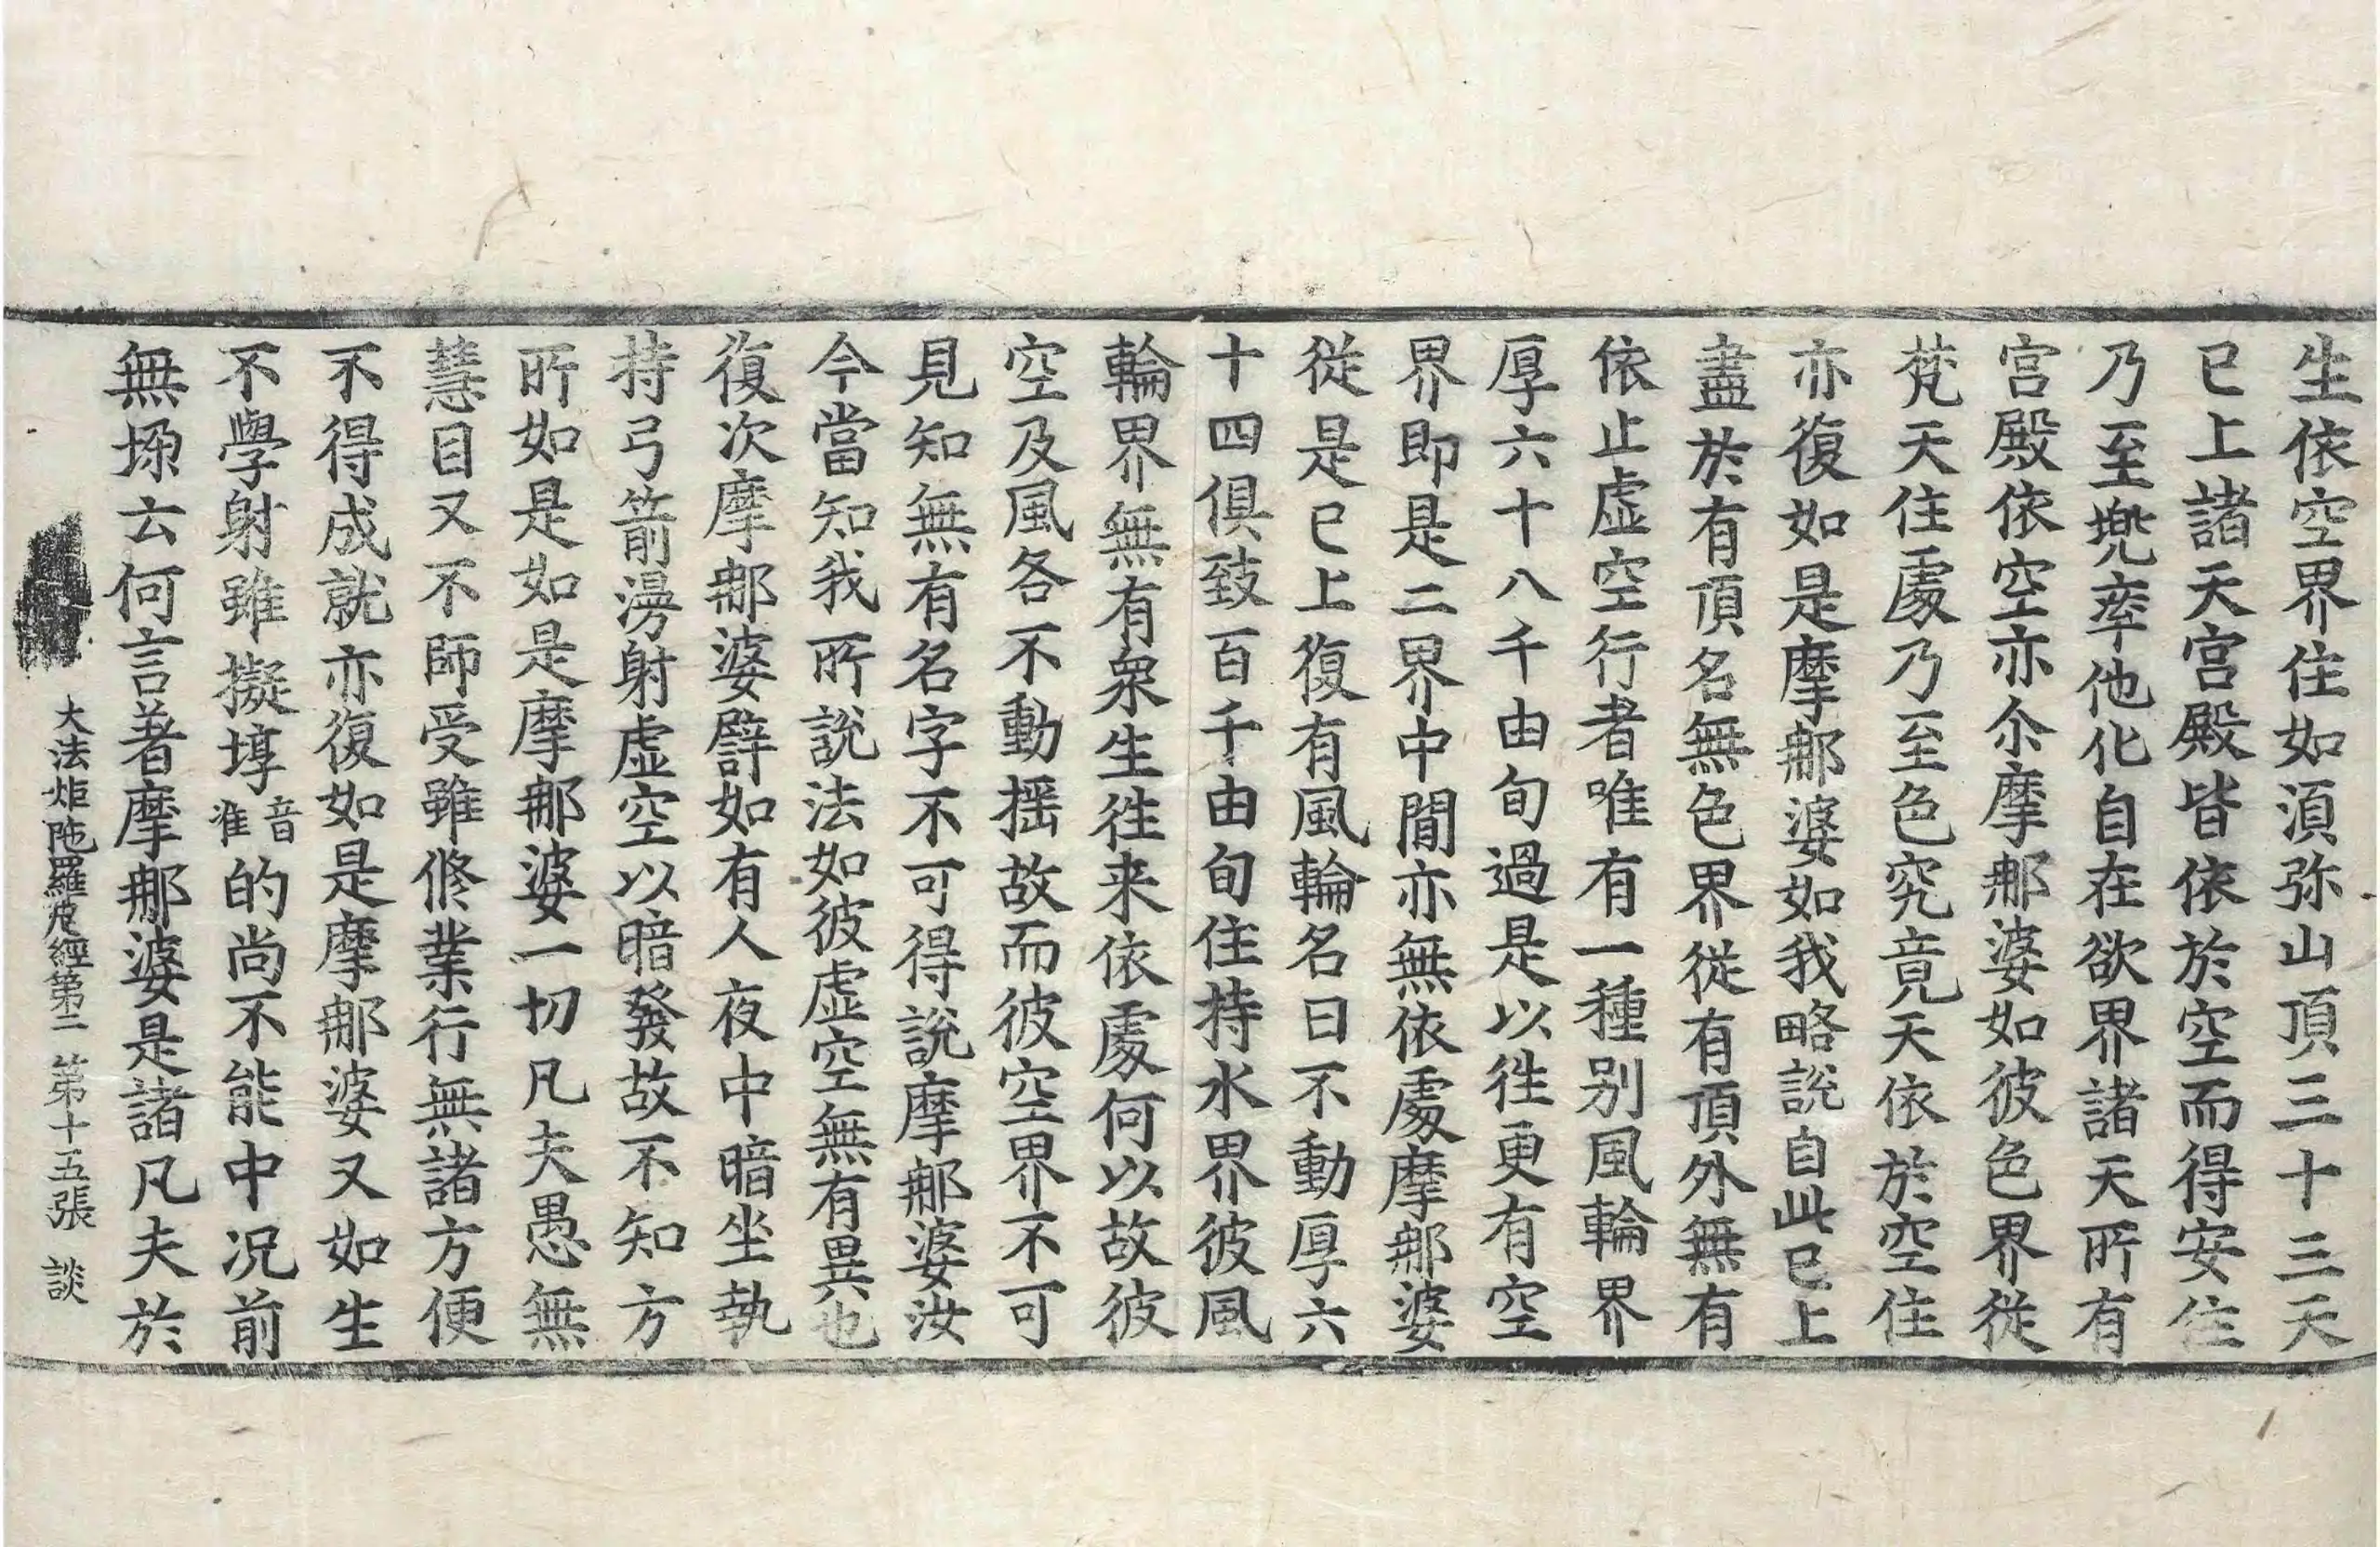 生依空界住如湏弥山頂三十三天
已上諸天宫殿皆依於空而得安住
乃至兠率他化自在欲界諸天所有
宫殿依空亦尒摩郍婆如彼色界從
梵天住處乃至色究竟天依於空住
亦復如是摩郍婆如我略說自此已上
盡於有頂名無色界從有頂外無有
依止虚空行者唯有一種别風輪界
厚六十八千由旬過是以徃更有空
界即是二界中間亦無依處摩郍婆
從是已上復有風輪名曰不動厚六
十四俱致百千由旬住持水界彼風
輪界無有衆生徃来依處何以故彼
空及風各不動揺故而彼空界不可
見知無有名字不可得說摩郍婆汝
今當知我所說法如彼虚空無有異也
復次摩郍婆譬如有人夜中暗坐執
持弓箭漫射虚空以暗發故不知方
所如是如是摩郍婆一切凡夫愚無
慧目又不師受雖修業行無諸方便
不得成就亦復如是摩郍婆又如生
不學射雖擬埻音准的尚不能中况前
無堔云何言著摩郍婆是諸凡夫於
大法炬陁羅尼經第二 第十五張 談